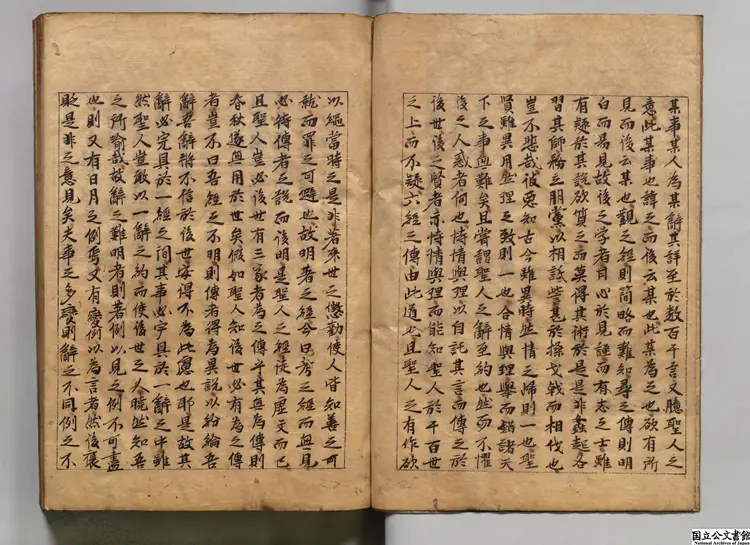 某事某人為某辭其詳至於数百千言又臆聖人之
意此某事也諱之而後云某也此某為之也欲有所
見而後云某也觀之経則簡略而難知尋之傳則明
白而易見故後之学者目心於見経而有志之士雖
有疑於其説欲質之而莫得其術於是是非蠭起各
習其師務立朋黨以相詆訾甚於操戈戟而相伐也
豈不悲哉彼悪知古今雖異時然情之帰則一也聖
賢雖異用然理之致則一也合情與理擧而錯諸天
下之事無難矣且嘗謂聖人之辭至約也然而不懼
後之人惑者何也恃情與理以自託其言而傳之於
後世後之賢者亦恃情與理而能知聖人於千百世
之上而不疑六経之傳由此道也且聖人之有作欲
以縄當時之是非著来世之懲勸使人皆知善之可
就而罪之可避也故明著之経今曰考之経而無見
必待傳者之説而後明是聖人之経徒為虚文而已
且聖人豈必後世有三家者為之傳乎其無為傳則
春秋遂無用於世矣假如聖人知後世必有為之傳
者豈不曰吾経之不明則傳者得為異説以紛綸吾
辭吾辭將不信於後世安得不為此慮也耶是故其
辭必完具於一経之間其事必完具於一辭之中雖
然聖人豈敢以一辭之約而使後世之人曉然知吾
之所喻哉故辭之難明者則著例以見之例不可盡
也則又有日月之例焉又有變例以為言者然後褒
貶是非之意見矣夫事之多變則辭之不同例之不
国立公文書館
National Archives of Japan